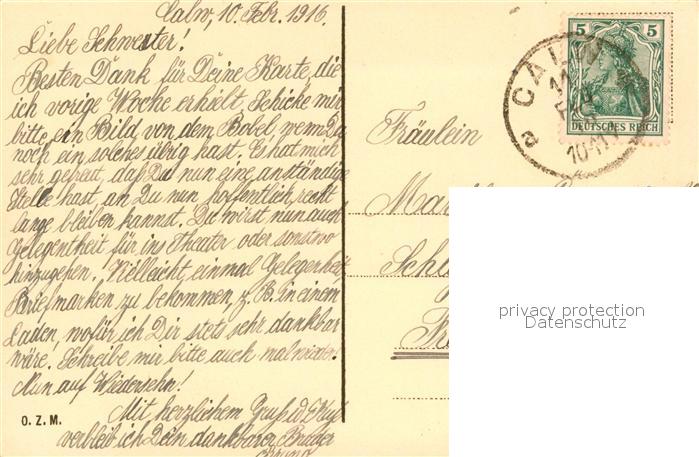 Calw, 10. Febr. 1916.
Liebe Schwester!
Besten Dank für Deine Karte, die
ich vorige Woche erhielt. Schicke mir
bitte ein Bild von dem Bobel, wenn Du
noch ein solches übrig hast. Es hat mich
sehr gefreut, daß Du nun eine anständige
Stelle hast an Du nun hoffentlich recht
lange bleiben kannst. Du wirst nun auch
Gelegentheit für ins Theater oder sonstwo
hinzugehen. Vielleicht einmal Gelegenheit
Briefmarken zu bekommen, z. B. in einem
Laden, wofür ich Dir stets sehr dankbar
wäre. Schreibe mir bitte auch mal wieder!
Nun auf Wiedersehn!
Mit herzlichem Gruß
verbleib ich Dein dankbarer Bruder
O. Z. M.
Fräulein
5 5
DEUTSCHES REICH
CALW
privacy protection
Datenschutz